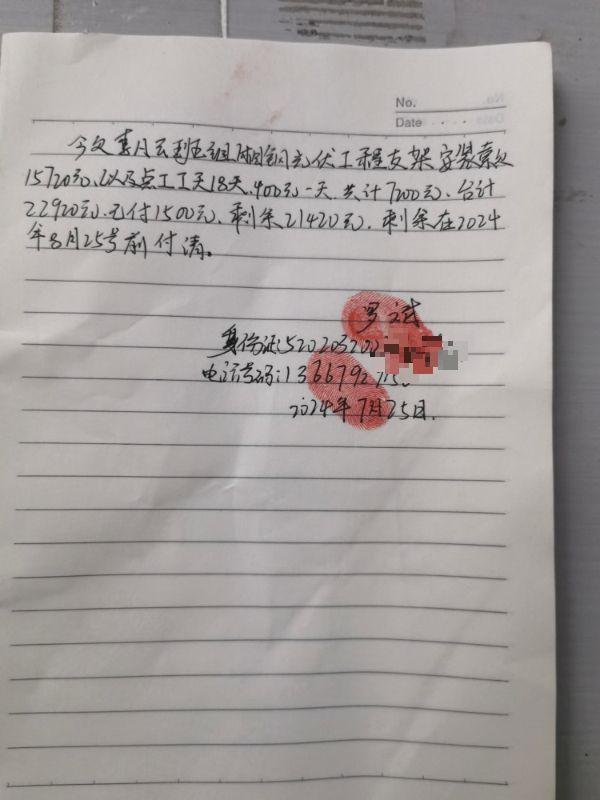 No.
Date
今欠李月云班组湘钢光伏工程支架安装款
15720元、以及点工工天18天、400元一天、共计7200元、合计
22920元、元付1500元、剩余21420元、剩余在2024
年8月25号前付清。
罗斌
身份证:520203200
电话号码:1366792715
2024年7月25日.